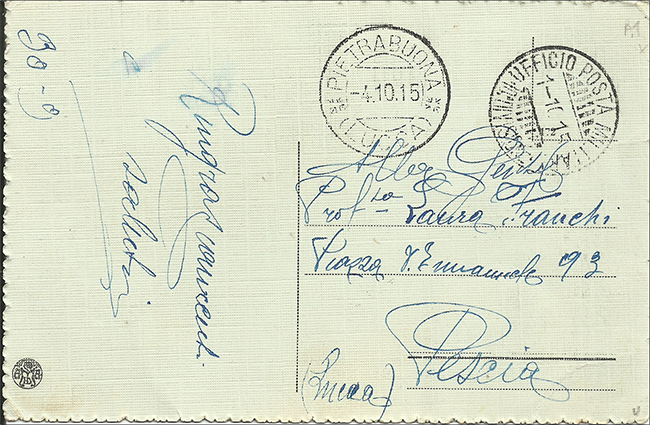 30-9
Ringraziamenti
e
saluti
PIETRABUONA
-4.10.15
(LUCCA)
UFFICIO POSTA MILITARE
1-10.15
Alla Gent.
Prof.ssa Laura Franchi
Piazza V. Emanuele 93
Pescia
(Lucca)